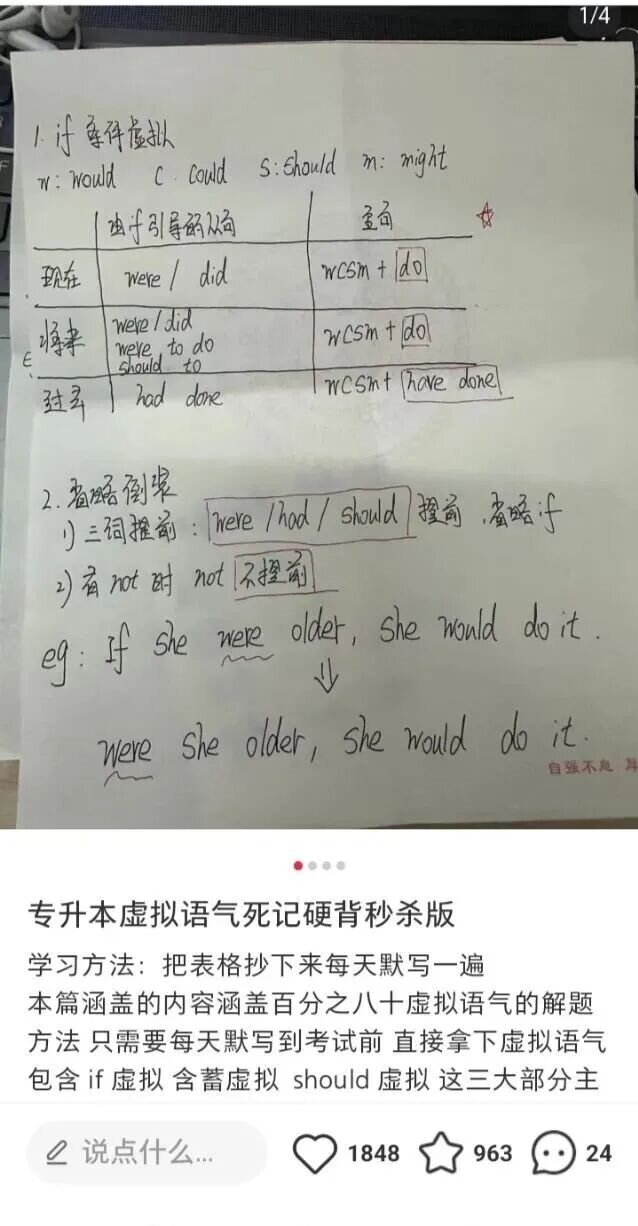 1/4
1. if 条件虚拟
w: would c. could s: should m: might
由if引导的从句 主句
现在 were / did wcsm + do
将来 were / did wcsm + do
were to do
should to
过去 had done wcsm + have done
2. 省略倒装
1) 三词提前: were / had / should 提前, 省略if
2) 有 not 时 not 不提前
eg: If she were older, she would do it.
were she older, she would do it.
自强不息
专升本虚拟语气死记硬背秒杀版
学习方法：把表格抄下来每天默写一遍
本篇涵盖的内容涵盖百分之八十虚拟语气的解题
方法 只需要每天默写到考试前 直接拿下虚拟语气
包含 if 虚拟 含蓄虚拟 should 虚拟 这三大部分主
说点什么... 1848 963 24